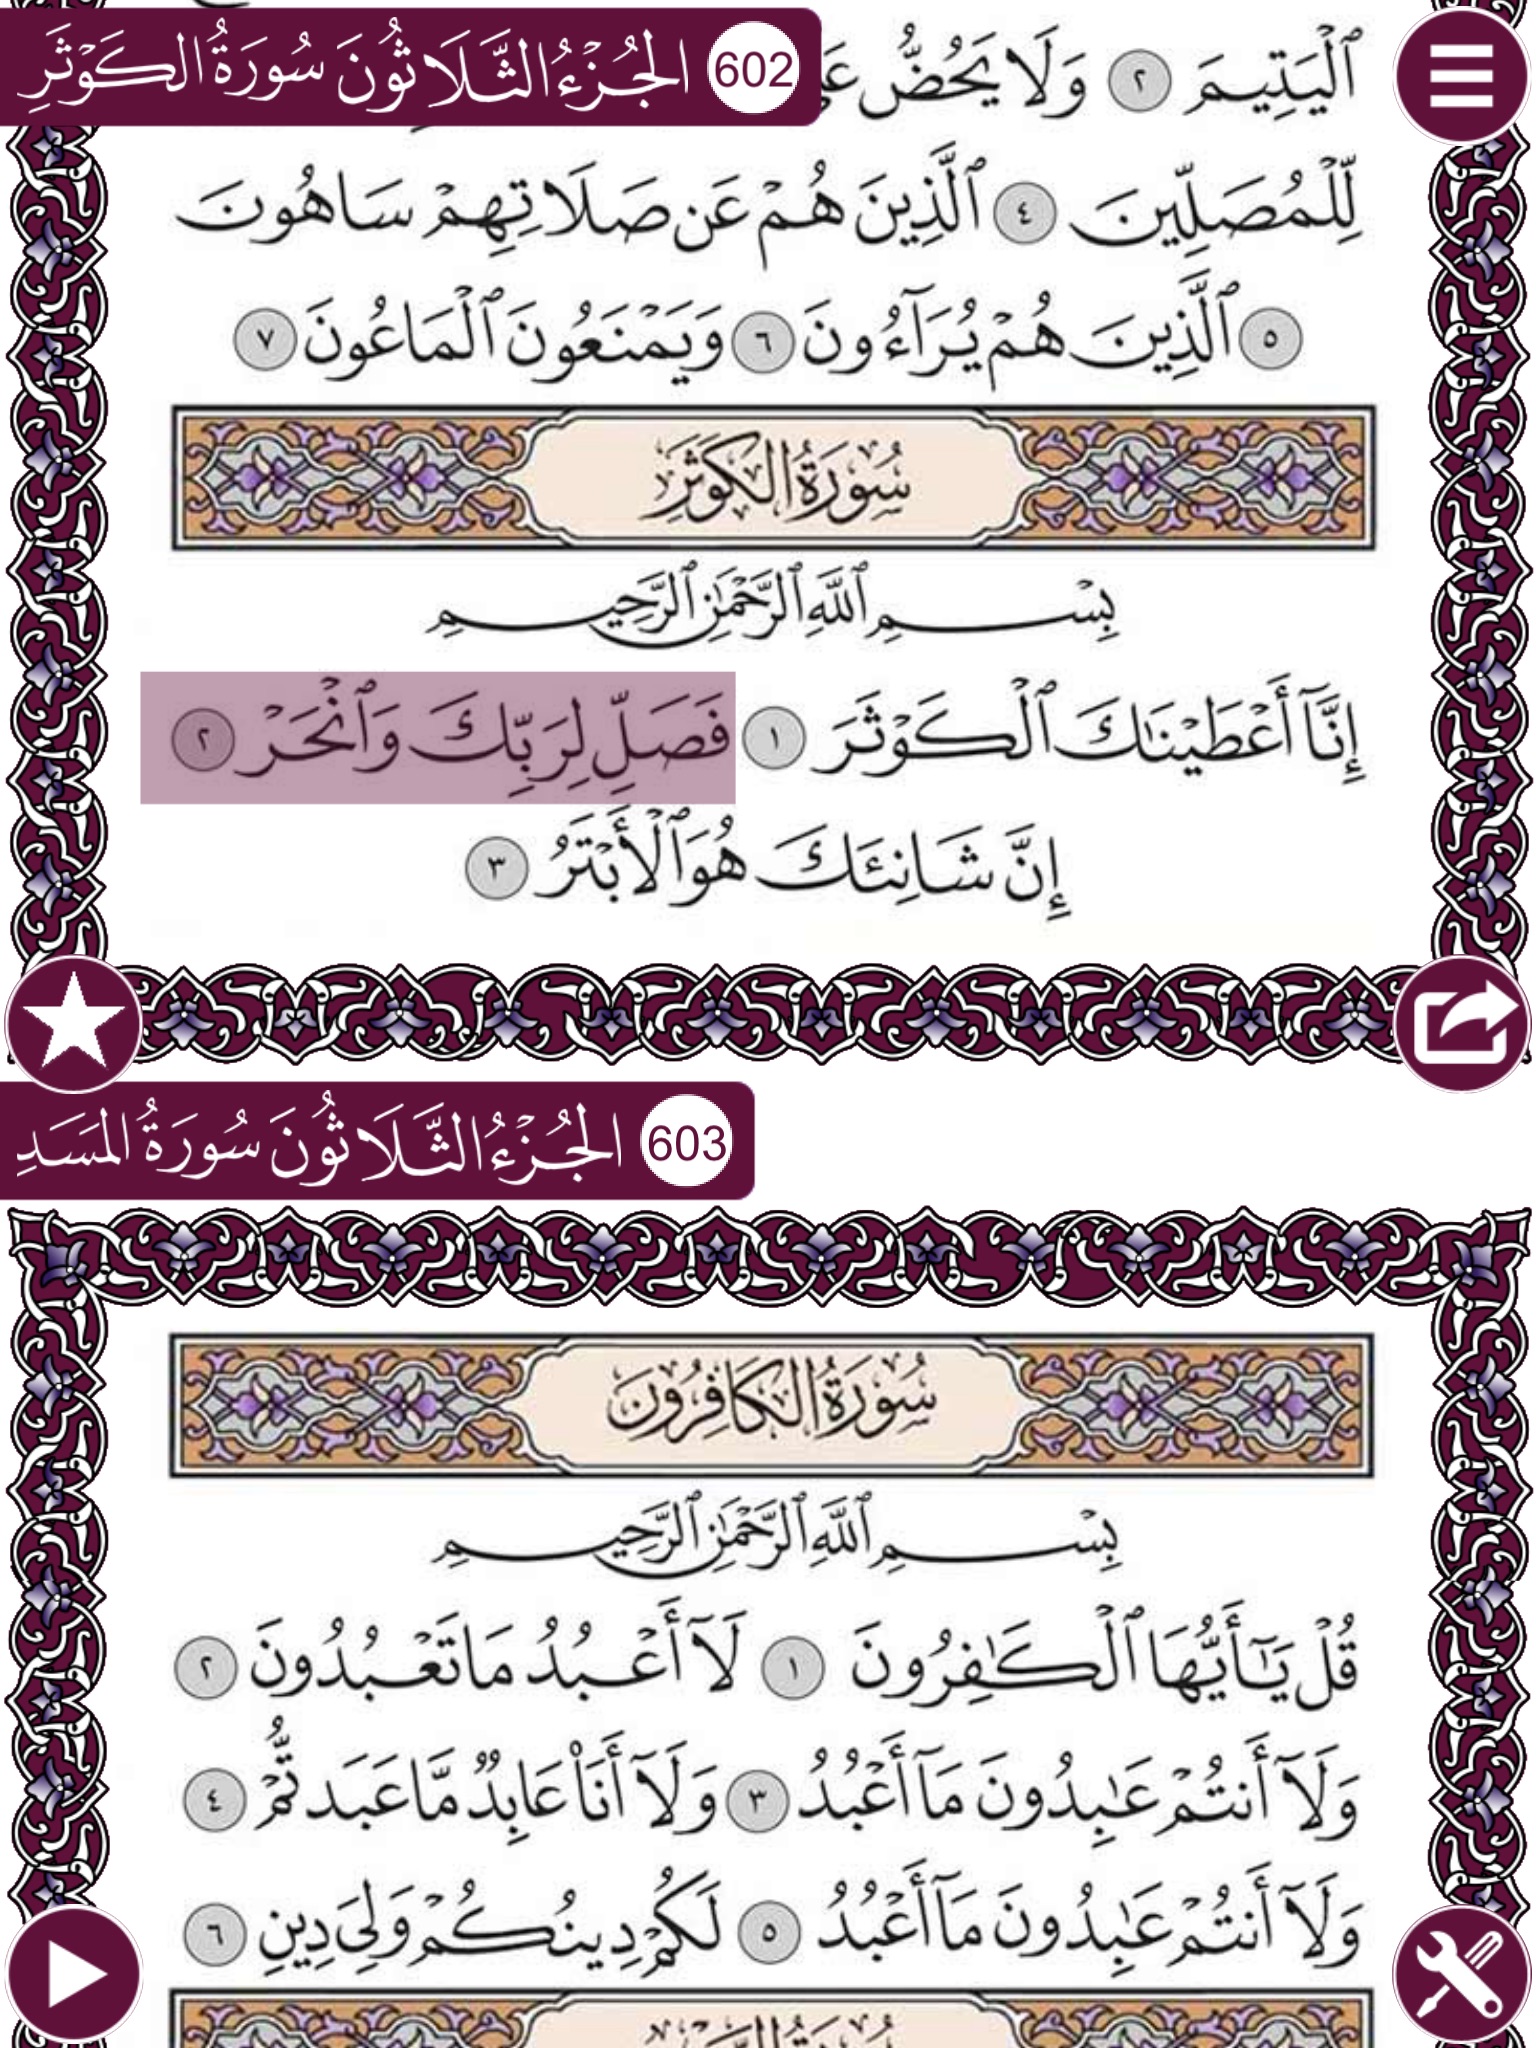 602 الجُزْءُ الثَّلَاثُونَ سُورَةُ الكَوْثَرِ
ٱلْيَتِيمَ ٢ وَلَا يَحُضُّ
لِّلْمُصَلِّينَ ٤ ٱلَّذِينَ هُمْ عَن صَلَاتِهِمْ سَاهُونَ
٥ ٱلَّذِينَ هُمْ يُرَآءُونَ ٦ وَيَمْنَعُونَ ٱلْمَاعُونَ ٧
سُورَةُ الكَوْثَرِ
بِسْمِ ٱللَّهِ ٱلرَّحْمَٰنِ ٱلرَّحِيمِ
إِنَّآ أَعْطَيْنَٰكَ ٱلْكَوْثَرَ ١ فَصَلِّ لِرَبِّكَ وَٱنْحَرْ ٢
إِنَّ شَانِئَكَ هُوَ ٱلْأَبْتَرُ ٣
603 الجُزْءُ الثَّلَاثُونَ سُورَةُ المَسَدِ
سُورَةُ الكَافِرُونَ
بِسْمِ ٱللَّهِ ٱلرَّحْمَٰنِ ٱلرَّحِيمِ
قُلْ يَٰٓأَيُّهَا ٱلْكَٰفِرُونَ ١ لَآ أَعْبُدُ مَا تَعْبُدُونَ ٢
وَلَآ أَنتُمْ عَٰبِدُونَ مَآ أَعْبُدُ ٣ وَلَآ أَنَا۠ عَابِدٌ مَّا عَبَدتُّمْ ٤
وَلَآ أَنتُمْ عَٰبِدُونَ مَآ أَعْبُدُ ٥ لَكُمْ دِينُكُمْ وَلِىَ دِينِ ٦